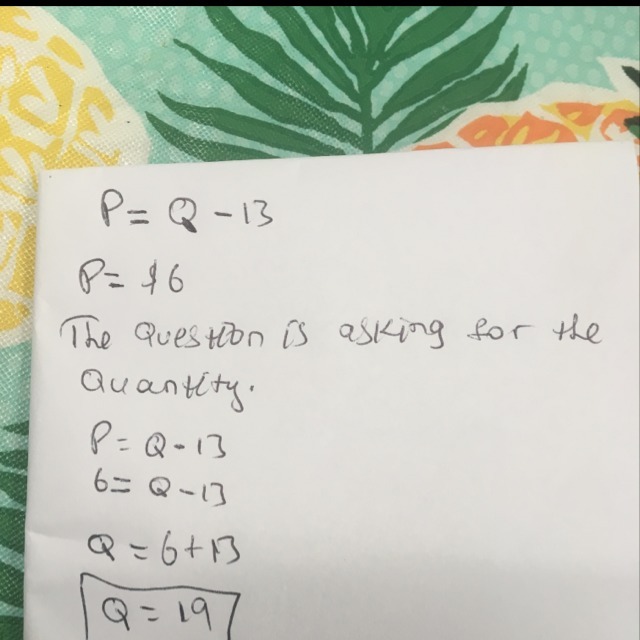 P = Q - 13
P = $6
The Question is asking for the
Quantity.
P = Q - 13
6 = Q - 13
Q = 6 + 13
Q = 19